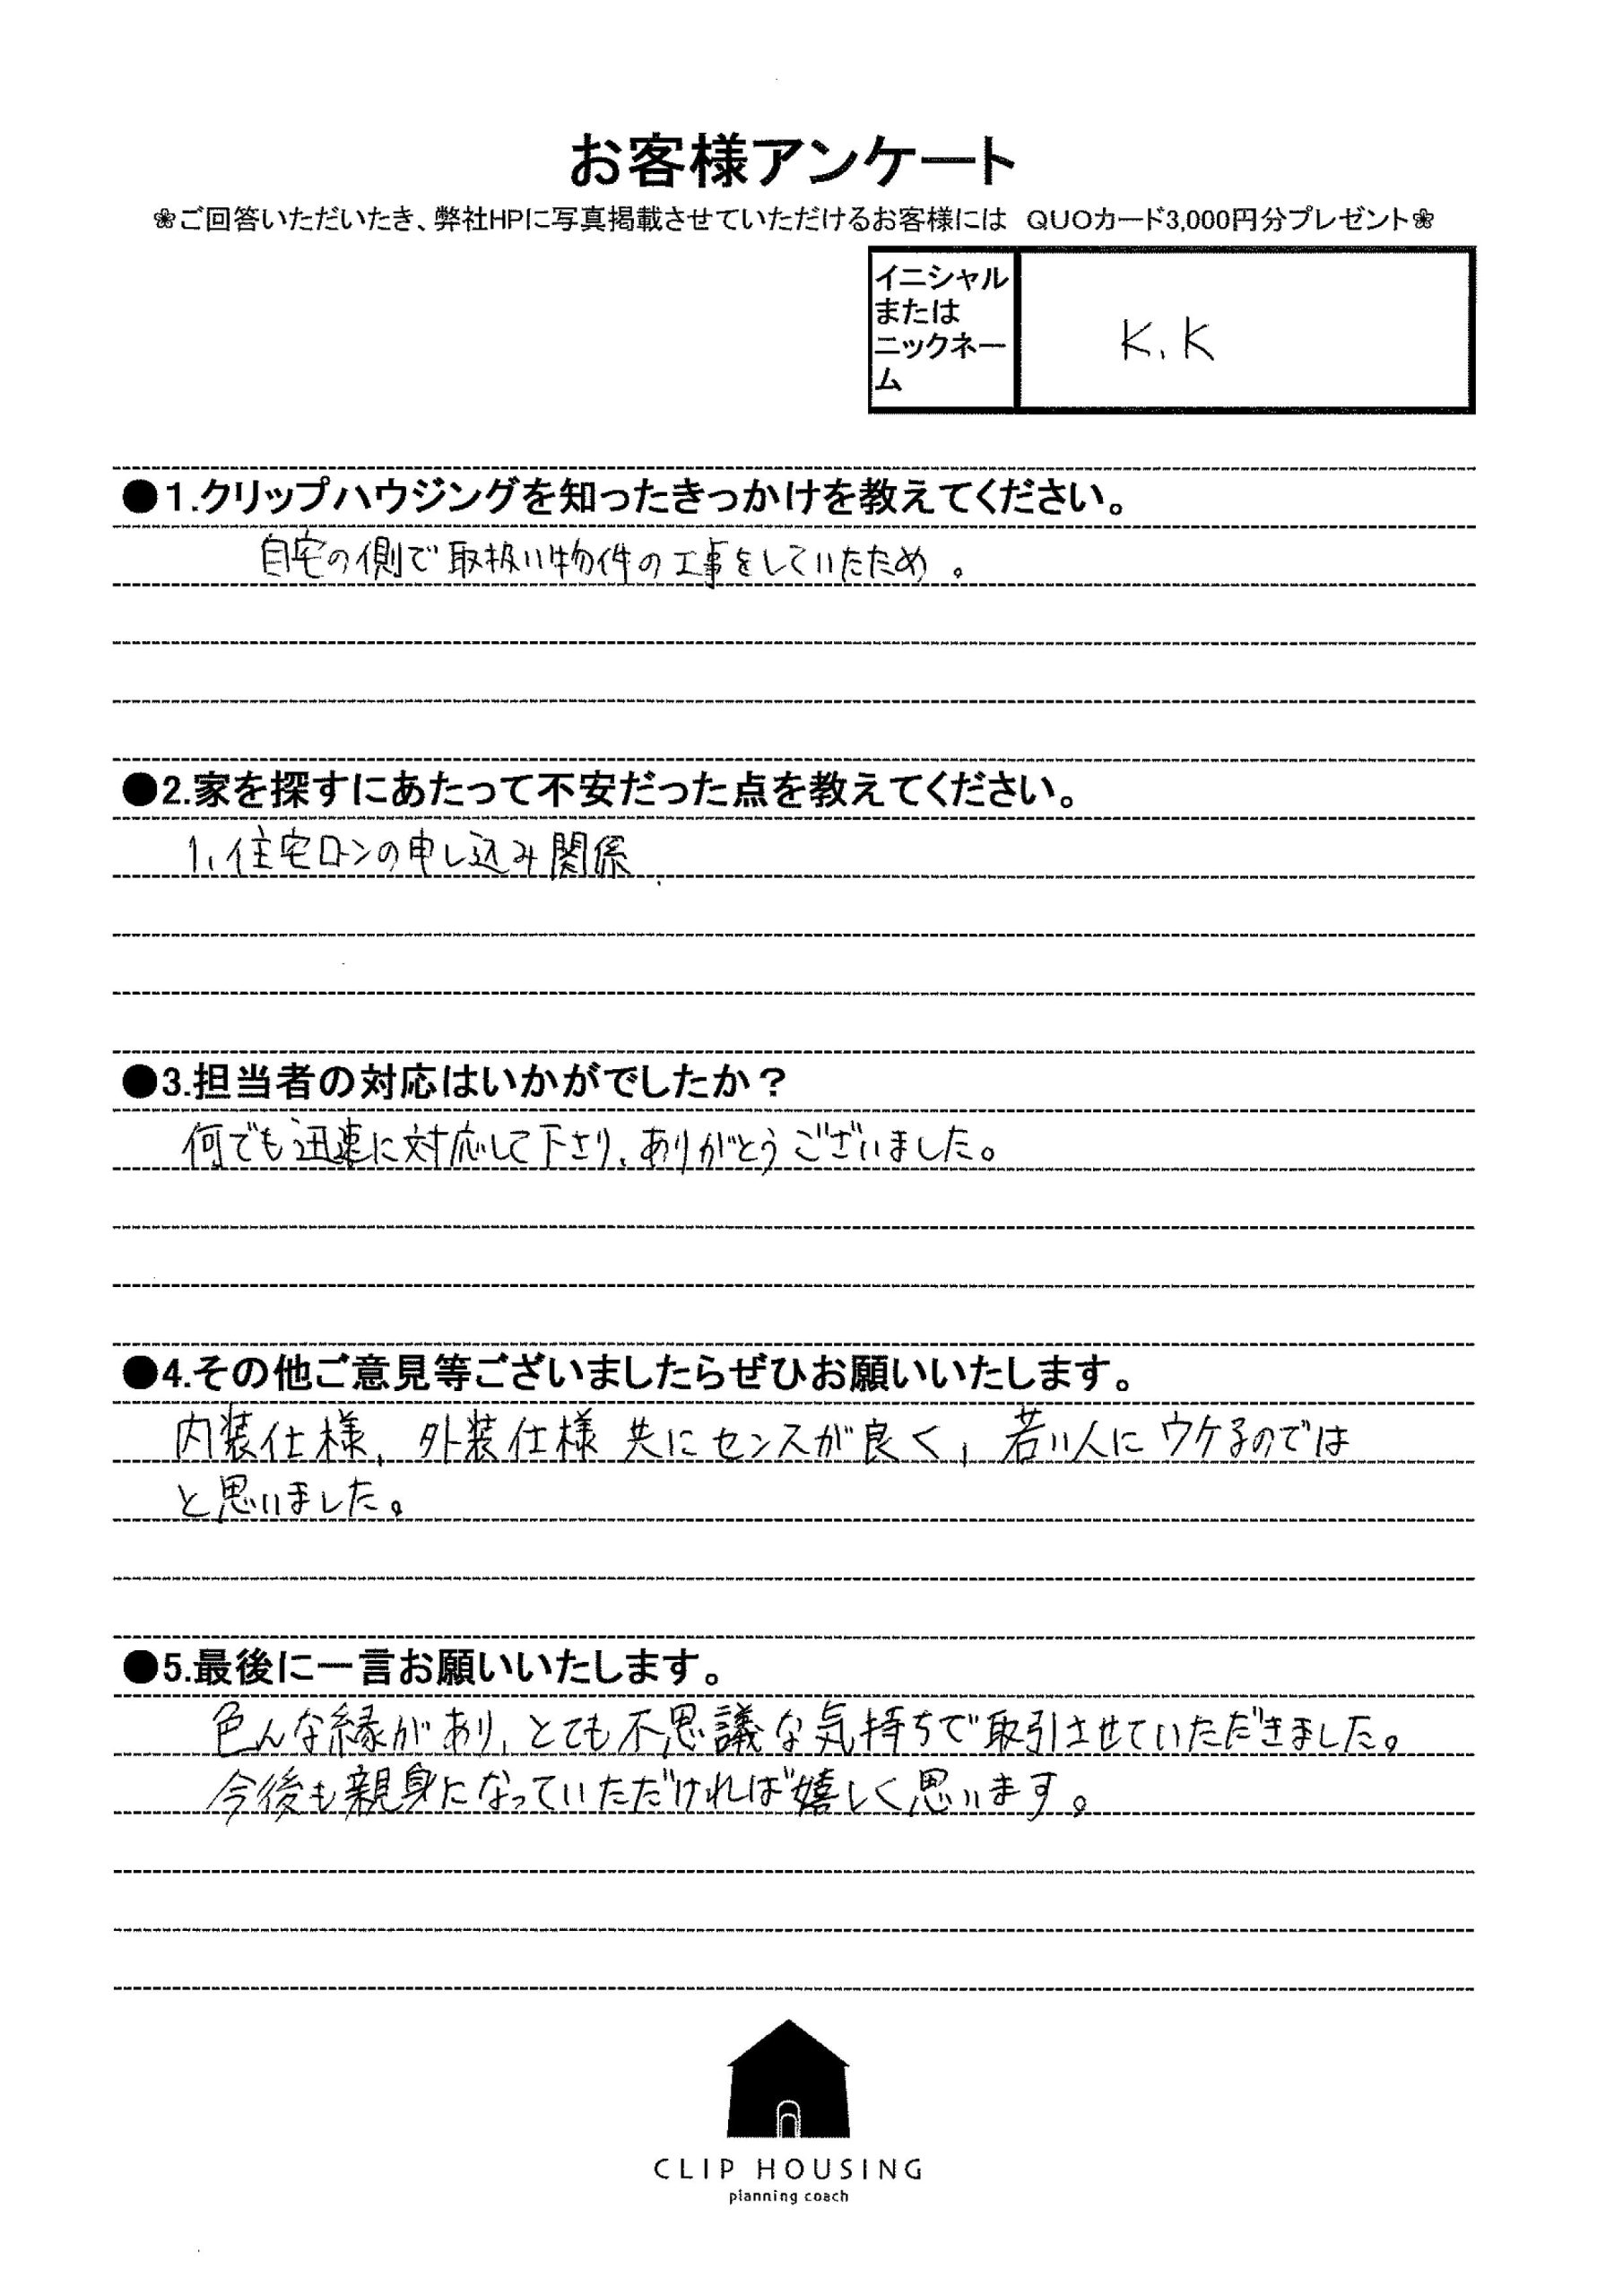 お客様アンケート
❀ご回答いただいたき、弊社HPに写真掲載させていただけるお客様には QUOカード3,000円分プレゼント❀
イニシャル
または
ニックネー
ム
K.K
●1.クリップハウジングを知ったきっかけを教えてください。
自宅の側で取扱い物件の工事をしていたため。
●2.家を探すにあたって不安だった点を教えてください。
1、住宅ローンの申し込み関係
●3.担当者の対応はいかがでしたか？
何でも迅速に対応して下さり、ありがとうございました。
●4.その他ご意見等ございましたらぜひお願いいたします。
内装仕様、外装仕様共にセンスが良く、若い人にウケるのでは
と思いました。
●5.最後に一言お願いいたします。
色んな縁があり、とても不思議な気持ちで取引させていただきました。
今後も親身になっていただければ嬉しく思います。
CLIP HOUSING
planning coach